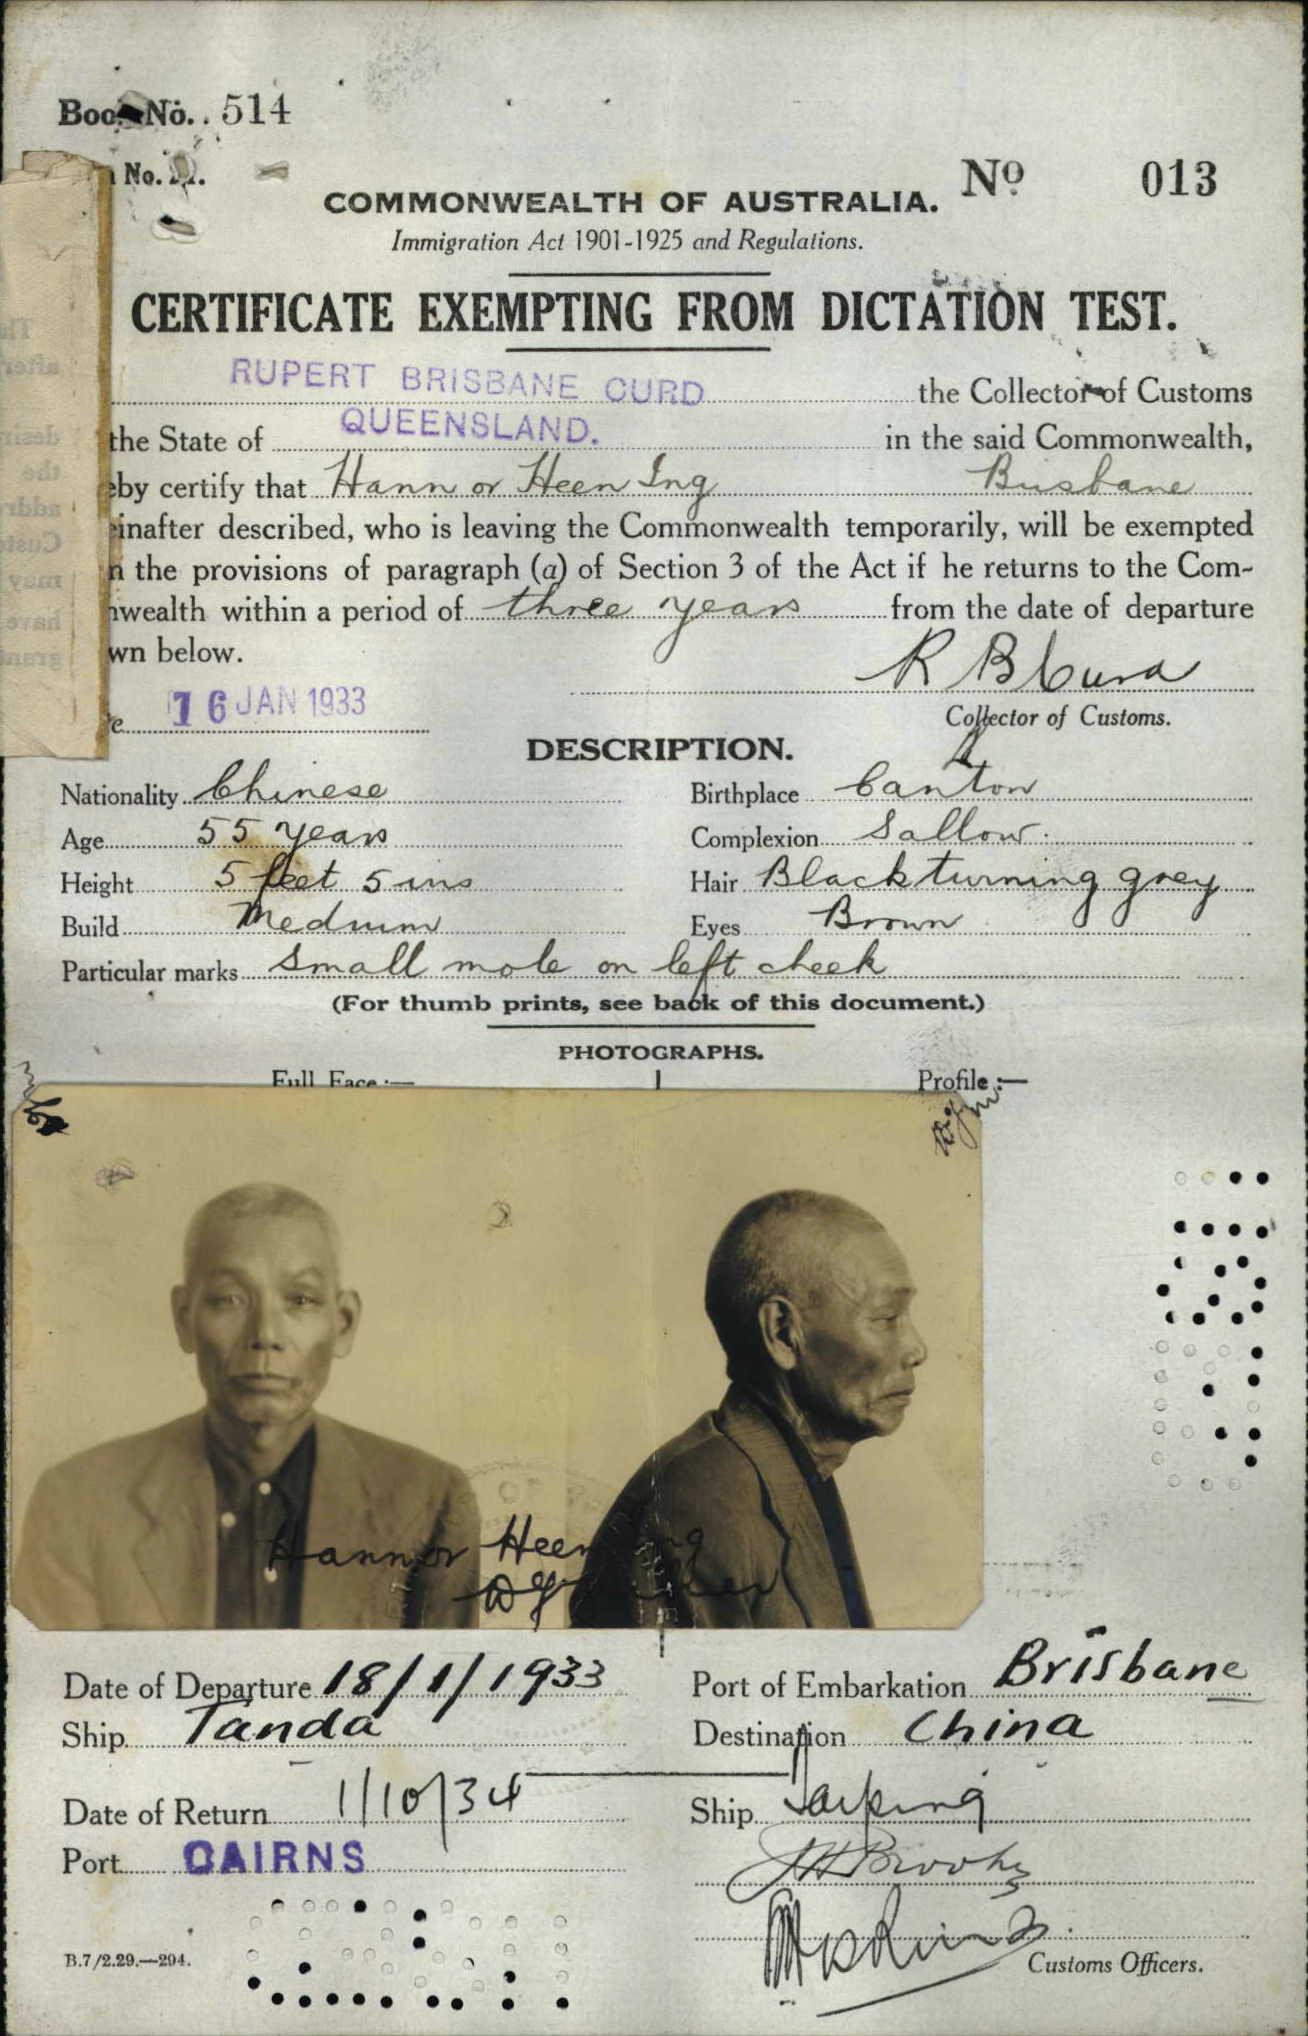 Book No. 514
No.
No 013
COMMONWEALTH OF AUSTRALIA.
Immigration Act 1901-1925 and Regulations.
CERTIFICATE EXEMPTING FROM DICTATION TEST.
RUPERT BRISBANE CURD the Collector of Customs
the State of QUEENSLAND. in the said Commonwealth,
eby certify that Hann or Heen Ing Brisbane
einafter described, who is leaving the Commonwealth temporarily, will be exempted
the provisions of paragraph (a) of Section 3 of the Act if he returns to the Com-
nwealth within a period of three years from the date of departure
wn below.
R B Curd
16 JAN 1933
Collector of Customs.
DESCRIPTION.
Nationality Chinese Birthplace Canton
Age 55 years Complexion Sallow.
Height 5 feet 5 ins Hair Black turning grey
Build Medium Eyes Brown
Particular marks Small mole on left cheek
(For thumb prints, see back of this document.)
PHOTOGRAPHS.
Full Face:— Profile:—
Hann or Heen Ing
Date of Departure 18/1/1933 Port of Embarkation Brisbane
Ship Tanda Destination China
Date of Return 1/10/34 Ship Taiping
Port CAIRNS
B.7/2.29.—294.
Customs Officers.